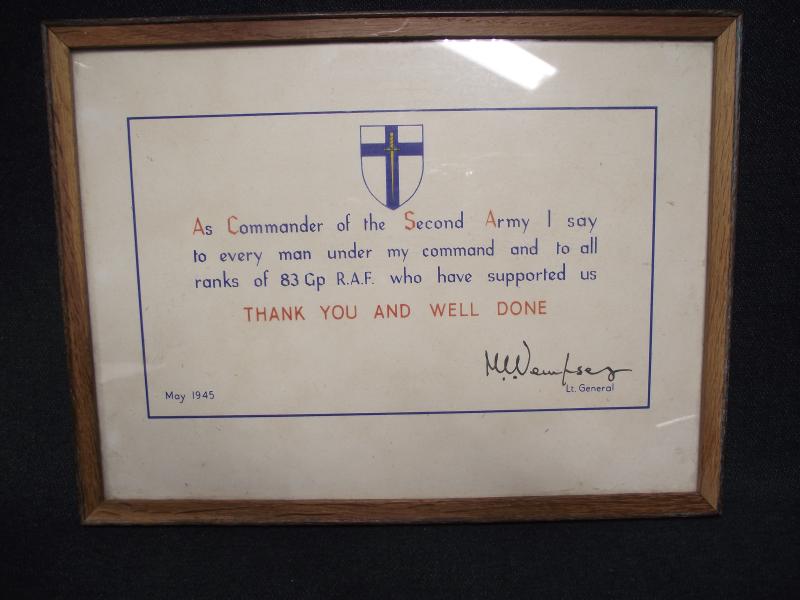 As Commander of the Second Army I say
to every man under my command and to all
ranks of 83 Gp R.A.F. who have supported us
THANK YOU AND WELL DONE
M.C. Dempsey
Lt. General
May 1945